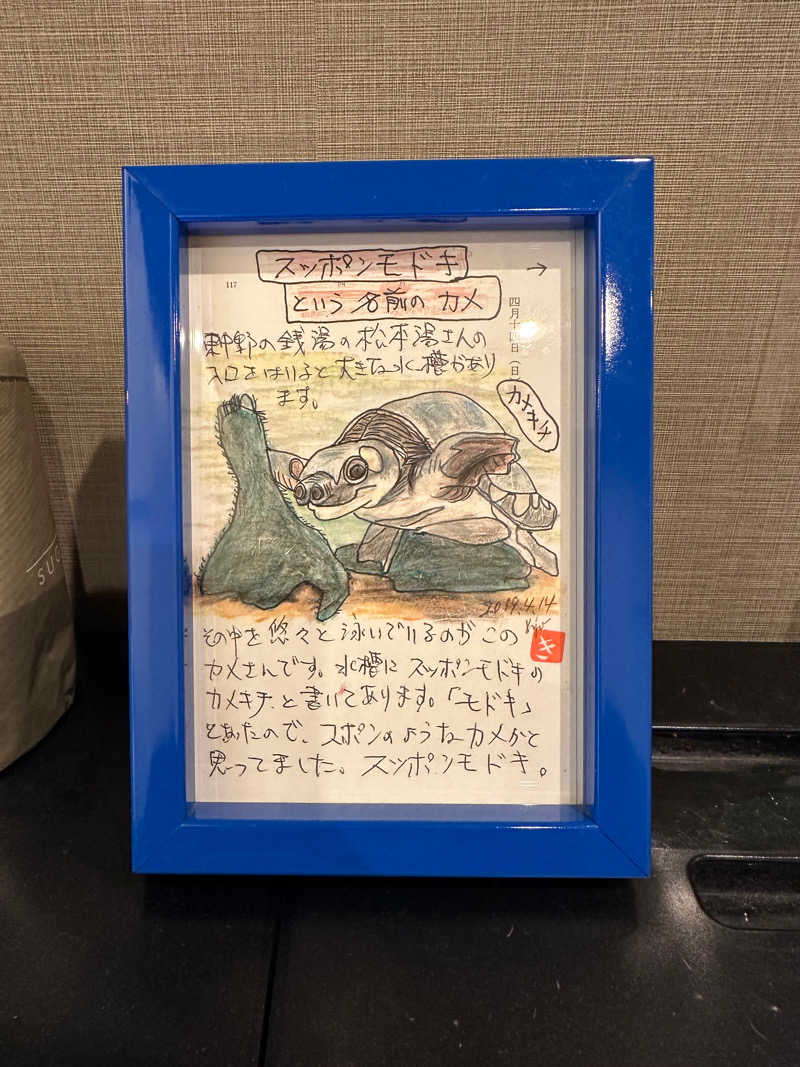 スッポンモドキ
という名前のカメ
→
117
四月十四日(日
東中野の銭湯の松本湯さんの
入口をはいると大きな水槽があり
ます。
カメキチ
2019.4.14
き
その中を悠々と泳いでいるのがこの
カメさんです。水槽にスッポンモドキの
カメキチと書いてあります。「モドキ」
とあったので、スポンのようなカメかと
思ってました。スッポンモドキ。
SUC